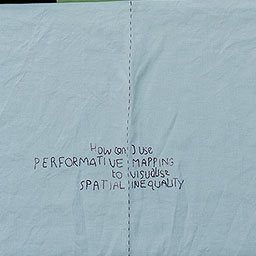 How can I use
PERFORMATIVE MAPPING
to visualise
SPATIAL INEQUALITY